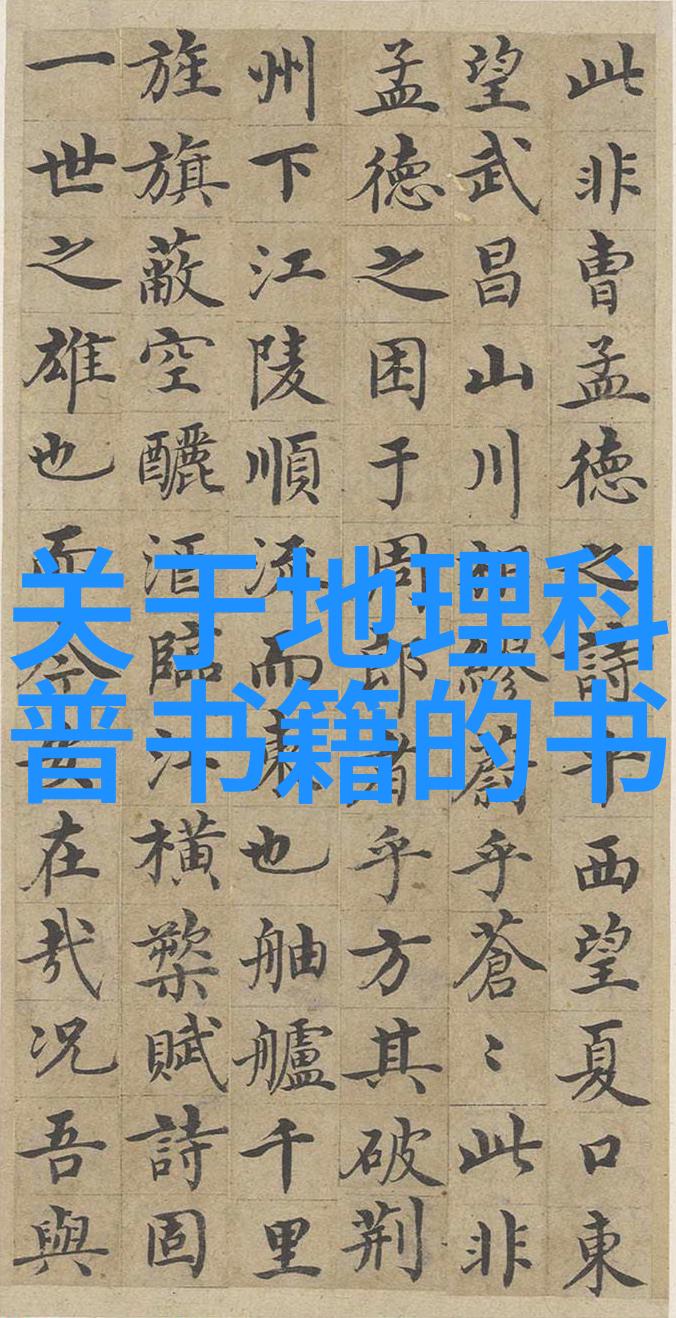 此非曹孟德之詩乎西望夏口東
望武昌山川相繆蔚乎蒼〻此非
孟德之困于周郎者乎方其破荊
州下江陵順流而東也舳艫千里
旌旗蔽空釃酒臨江橫槊賦詩固
一世之雄也而今安在哉況吾與
关于地理科
普书籍的书